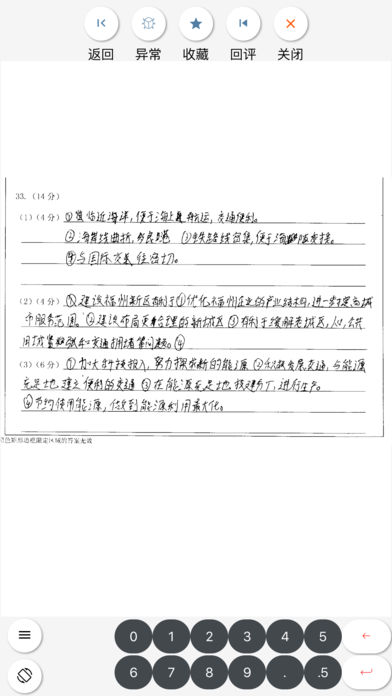 返回 异常 收藏 回评 关闭
33. (14 分)
(1)(4 分) ①临近海洋,便于海上航运,交通便利。
②海岸线曲折,多良港 ③铁路线密集,便于海陆联运。
④与国际交往密切。
(2)(4 分) 建设福州新区有利于①优化福州企业的产业结构,进一步提高城
市服务范围 ②建设布局更合理的新城区 ③有利于缓解老城区,人,公共
用和交通拥堵等问题。④
(3)(6 分) ①加大科技投入,努力探索新的能源 ②积极发展交通,与能源
充足地建立便利的交通 ③在能源充足地建,进行生产。
④节约使用能源,做到能源利用最大化。
色矩形边框限定区域的答案无效
0 1 2 3 4 5
6 7 8 9 . .5